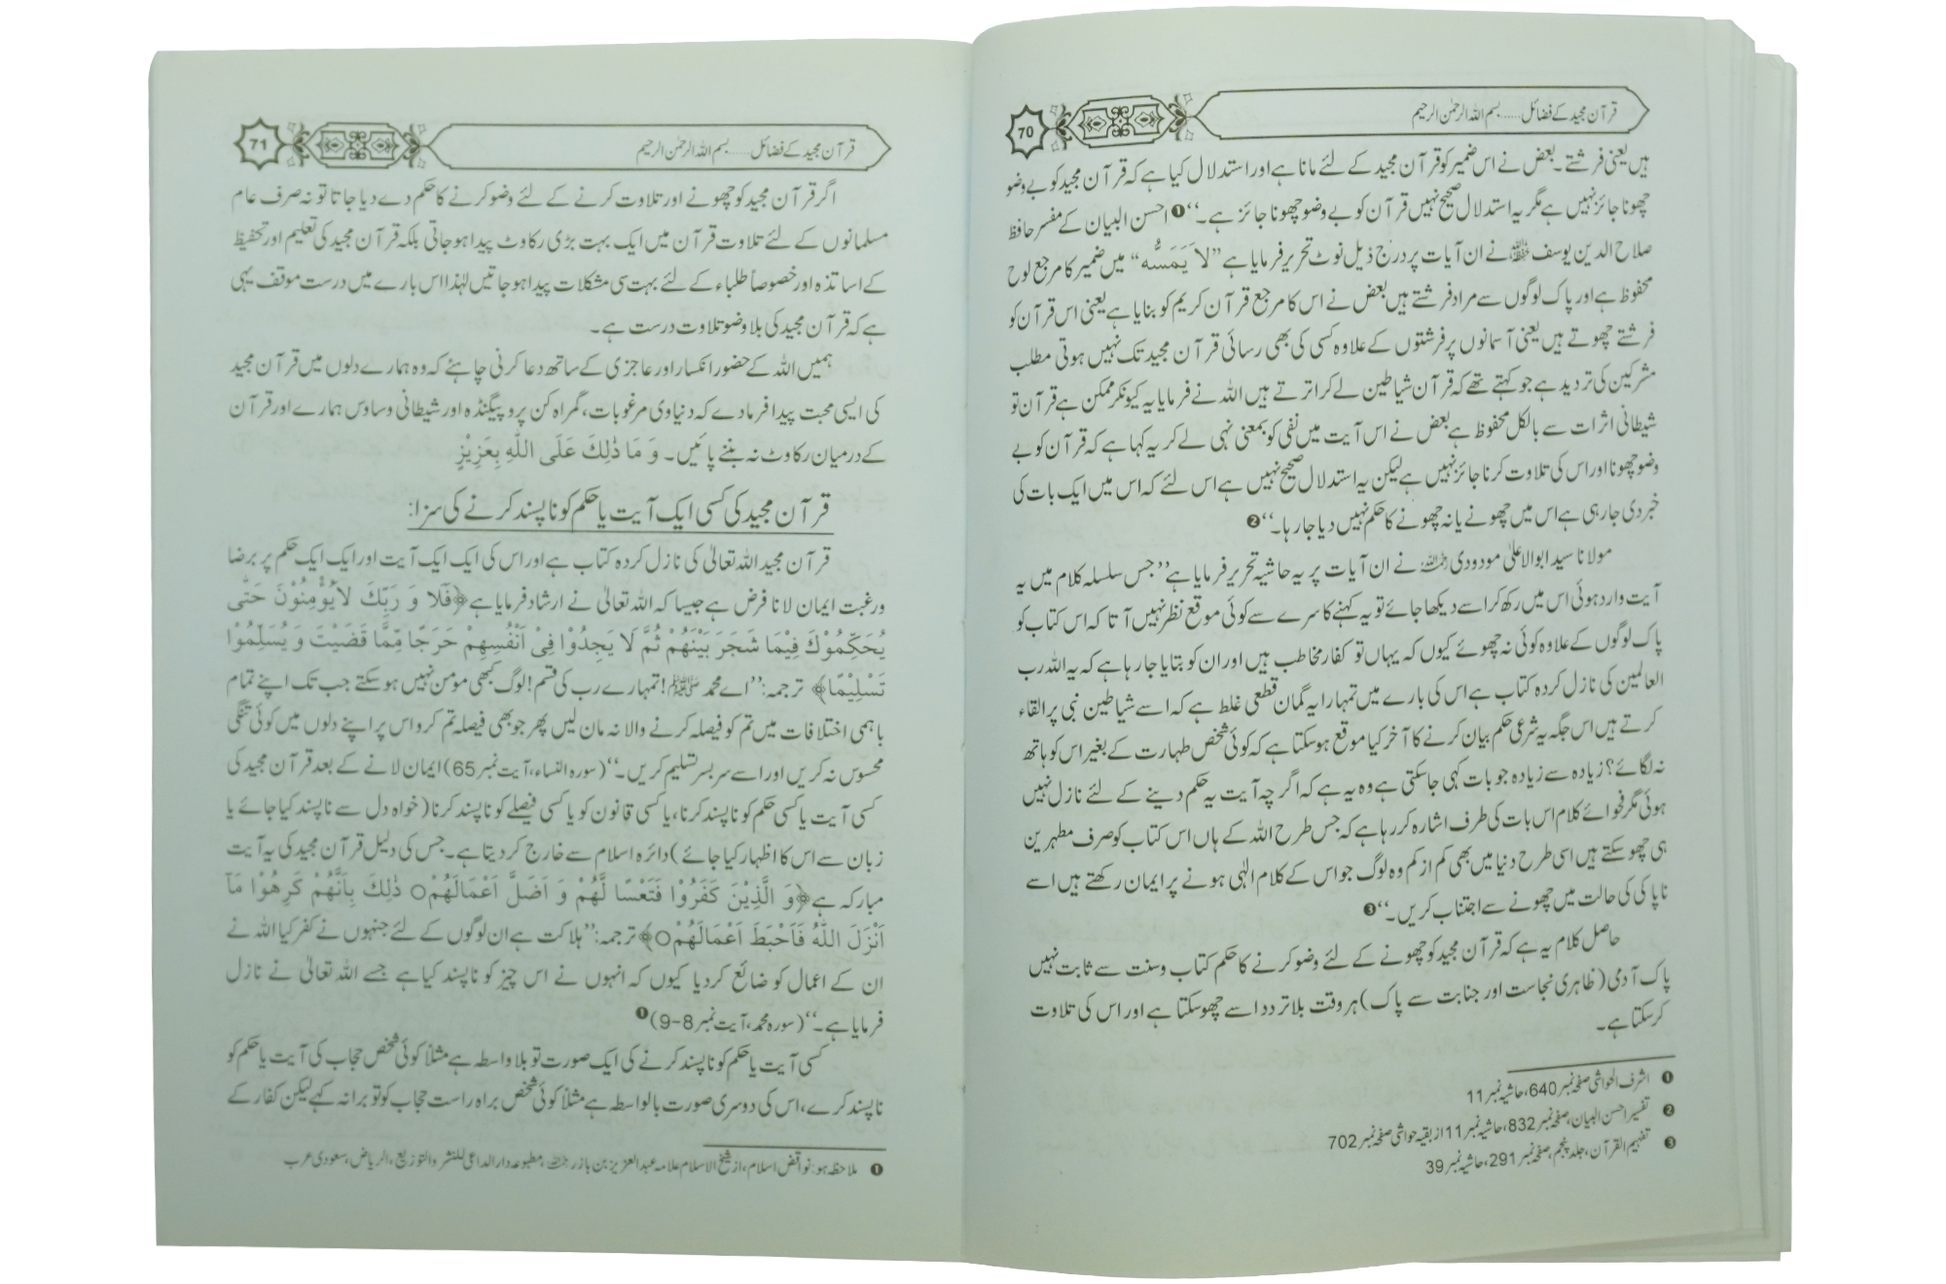 قرآن مجید کے فضائل ..... بسم اللہ الرحمٰن الرحیم
70
ہیں یعنی فرشتے۔ بعض نے اس ضمیر کو قرآن مجید کے لئے مانا ہے اور استدلال کیا ہے کہ قرآن مجید کو بے وضو
چھونا جائز نہیں ہے مگر یہ استدلال صحیح نہیں قرآن کو بے وضو چھونا جائز ہے۔‘‘❶ احسن البیان کے مفسر حافظ
صلاح الدین یوسف ﷾ نے ان آیات پر درج ذیل نوٹ تحریر فرمایا ہے ’’لاَ یَمَسُّہ‘‘ میں ضمیر کا مرجع لوح
محفوظ ہے اور پاک لوگوں سے مراد فرشتے ہیں بعض نے اس کا مرجع قرآن کریم کو بنایا ہے یعنی اس قرآن کو
فرشتے چھوتے ہیں یعنی آسمانوں پر فرشتوں کے علاوہ کسی کی بھی رسائی قرآن مجید تک نہیں ہوتی مطلب
مشرکین کی تردید ہے جو کہتے تھے کہ قرآن شیاطین لے کر اترتے ہیں اللہ نے فرمایا یہ کیونکر ممکن ہے قرآن تو
شیطانی اثرات سے بالکل محفوظ ہے بعض نے اس آیت میں نفی کو بمعنی نہی لے کر یہ کہا ہے کہ قرآن کو بے
وضو چھونا اور اس کی تلاوت کرنا جائز نہیں ہے لیکن یہ استدلال صحیح نہیں ہے اس لئے کہ اس میں ایک بات کی
خبر دی جا رہی ہے اس میں چھونے یا نہ چھونے کا حکم نہیں دیا جا رہا۔‘‘❷
مولانا سید ابوالاعلیٰ مودودی رحمہ اللہ نے ان آیات پر یہ حاشیہ تحریر فرمایا ہے ’’جس سلسلہ کلام میں یہ
آیت وارد ہوئی اس میں رکھ کر اسے دیکھا جائے تو یہ کہنے کا سرے سے کوئی موقع نظر نہیں آتا کہ اس کتاب کو
پاک لوگوں کے علاوہ کوئی نہ چھوئے کیوں کہ یہاں تو کفار مخاطب ہیں اور ان کو بتایا جا رہا ہے کہ یہ اللہ رب
العالمین کی نازل کردہ کتاب ہے اس کی بارے میں تمہارا یہ گمان قطعی غلط ہے کہ اسے شیاطین نبی پر القاء
کرتے ہیں اس جگہ یہ شرعی حکم بیان کرنے کا آخر کیا موقع ہو سکتا ہے کہ کوئی شخص طہارت کے بغیر اس کو ہاتھ
نہ لگائے؟ زیادہ سے زیادہ جو بات کہی جا سکتی ہے وہ یہ ہے کہ اگرچہ آیت یہ حکم دینے کے لئے نازل نہیں
ہوئی مگر فحوائے کلام اس بات کی طرف اشارہ کر رہا ہے کہ جس طرح اللہ کے ہاں اس کتاب کو صرف مطہرین
ہی چھو سکتے ہیں اسی طرح دنیا میں بھی کم از کم وہ لوگ جو اس کے کلام الٰہی ہونے پر ایمان رکھتے ہیں اسے
ناپاکی کی حالت میں چھونے سے اجتناب کریں۔‘‘❸
حاصل کلام یہ ہے کہ قرآن مجید کو چھونے کے لئے وضو کرنے کا حکم کتاب وسنت سے ثابت نہیں
پاک آدمی (ظاہری نجاست اور جنابت سے پاک) ہر وقت بلا تردد اسے چھو سکتا ہے اور اس کی تلاوت
کر سکتا ہے۔
❶ اشرف الحواشی صفحہ نمبر 640، حاشیہ نمبر 11
❷ تفسیر احسن البیان، صفحہ نمبر 832، حاشیہ نمبر 11 از بقیہ حواشی صفحہ نمبر 702
❸ تفہیم القرآن، جلد پنجم، صفحہ نمبر 291، حاشیہ نمبر 39
قرآن مجید کے فضائل ..... بسم اللہ الرحمٰن الرحیم
71
اگر قرآن مجید کو چھونے اور تلاوت کرنے کے لئے وضو کرنے کا حکم دے دیا جاتا تو نہ صرف عام
مسلمانوں کے لئے تلاوت قرآن میں ایک بہت بڑی رکاوٹ پیدا ہو جاتی بلکہ قرآن مجید کی تعلیم اور تحفیظ
کے اساتذہ اور خصوصاً طلباء کے لئے بہت سی مشکلات پیدا ہو جاتیں لہٰذا اس بارے میں درست موقف یہی
ہے کہ قرآن مجید کی بلا وضو تلاوت درست ہے۔
ہمیں اللہ کے حضور انکسار اور عاجزی کے ساتھ دعا کرنی چاہئے کہ وہ ہمارے دلوں میں قرآن مجید
کی ایسی محبت پیدا فرما دے کہ دنیاوی مرغوبات، گمراہ کن پروپیگنڈہ اور شیطانی وساوس ہمارے اور قرآن
کے درمیان رکاوٹ نہ بننے پائیں۔ وَ مَا ذٰلِكَ عَلَى اللّٰهِ بِعَزِيْزٍ
قرآن مجید کی کسی ایک آیت یا حکم کو ناپسند کرنے کی سزا:
قرآن مجید اللہ تعالیٰ کی نازل کردہ کتاب ہے اور اس کی ایک ایک آیت اور ایک ایک حکم پر برضا
ورغبت ایمان لانا فرض ہے جیسا کہ اللہ تعالیٰ نے ارشاد فرمایا ہے ﴿فَلَا وَ رَبِّكَ لَا يُؤْمِنُوْنَ حَتّٰى
يُحَكِّمُوْكَ فِيْمَا شَجَرَ بَيْنَهُمْ ثُمَّ لَا يَجِدُوْا فِىْ اَنْفُسِهِمْ حَرَجًا مِّمَّا قَضَيْتَ وَ يُسَلِّمُوْا
تَسْلِيْمًا﴾ ترجمہ: ’’اے محمد ﷺ! تمہارے رب کی قسم! لوگ کبھی مومن نہیں ہو سکتے جب تک اپنے تمام
باہمی اختلافات میں تم کو فیصلہ کرنے والا نہ مان لیں پھر جو بھی فیصلہ تم کرو اس پر اپنے دلوں میں کوئی تنگی
محسوس نہ کریں اور اسے سر بسر تسلیم کریں۔‘‘ (سورہ النساء، آیت نمبر 65) ایمان لانے کے بعد قرآن مجید کی
کسی آیت یا کسی حکم کو ناپسند کرنا، یا کسی قانون کو یا کسی فیصلے کو ناپسند کرنا (خواہ دل سے ناپسند کیا جائے یا
زبان سے اس کا اظہار کیا جائے) دائرہ اسلام سے خارج کر دیتا ہے۔ جس کی دلیل قرآن مجید کی یہ آیت
مبارکہ ہے ﴿وَ الَّذِيْنَ كَفَرُوْا فَتَعْسًا لَّهُمْ وَ اَضَلَّ اَعْمَالَهُمْ○ ذٰلِكَ بِاَنَّهُمْ كَرِهُوْا مَآ
اَنْزَلَ اللّٰهُ فَاَحْبَطَ اَعْمَالَهُمْ○﴾ ترجمہ: ’’ہلاکت ہے ان لوگوں کے لئے جنہوں نے کفر کیا اللہ نے
ان کے اعمال کو ضائع کر دیا کیوں کہ انہوں نے اس چیز کو ناپسند کیا ہے جسے اللہ تعالیٰ نے نازل
فرمایا ہے۔‘‘ (سورہ محمد، آیت نمبر 8-9)❶
کسی آیت یا حکم کو ناپسند کرنے کی ایک صورت تو بلا واسطہ ہے مثلاً کوئی شخص حجاب کی آیت یا حکم کو
ناپسند کرے، اس کی دوسری صورت بالواسطہ ہے مثلاً کوئی شخص براہ راست حجاب کو تو برا نہ کہے لیکن کفار کے
❶ ملاحظہ ہو: نواقض اسلام، از شیخ الاسلام علامہ عبدالعزیز بن باز رحمہ اللہ، مطبوعہ دار الداعی للنشر والتوزیع، الریاض، سعودی عرب